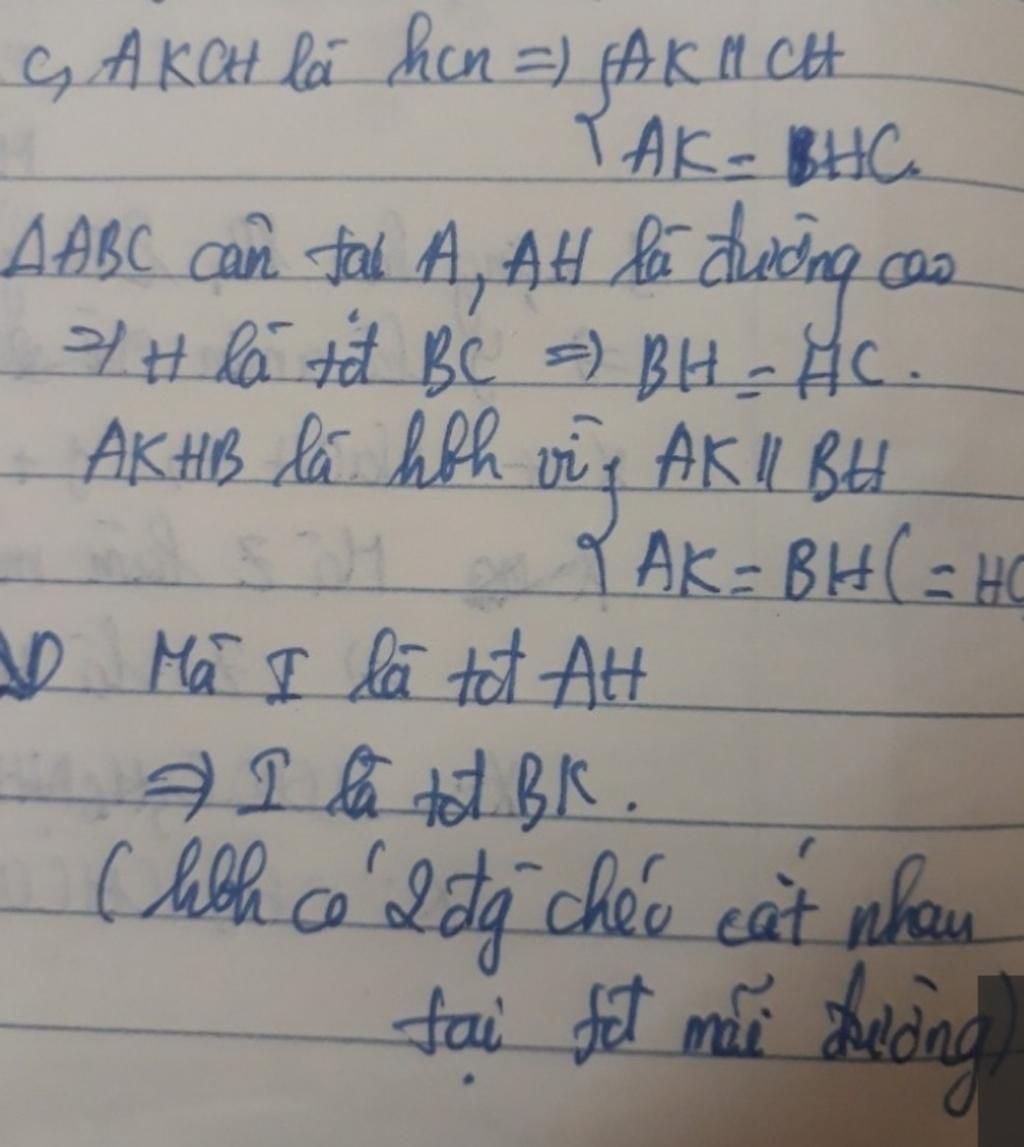 c, AKCH là hcn => { AK // CH
AK = HC.
ΔABC cân tại A, AH là đường cao
=> H là tđ BC => BH = HC.
AKHB là hbh vì { AK // BH
AK = BH (= HC
Mà I là tđ AH
=> I là tđ BK.
(hbh có 2 đg chéo cắt nhau
tại tđ mỗi đường)